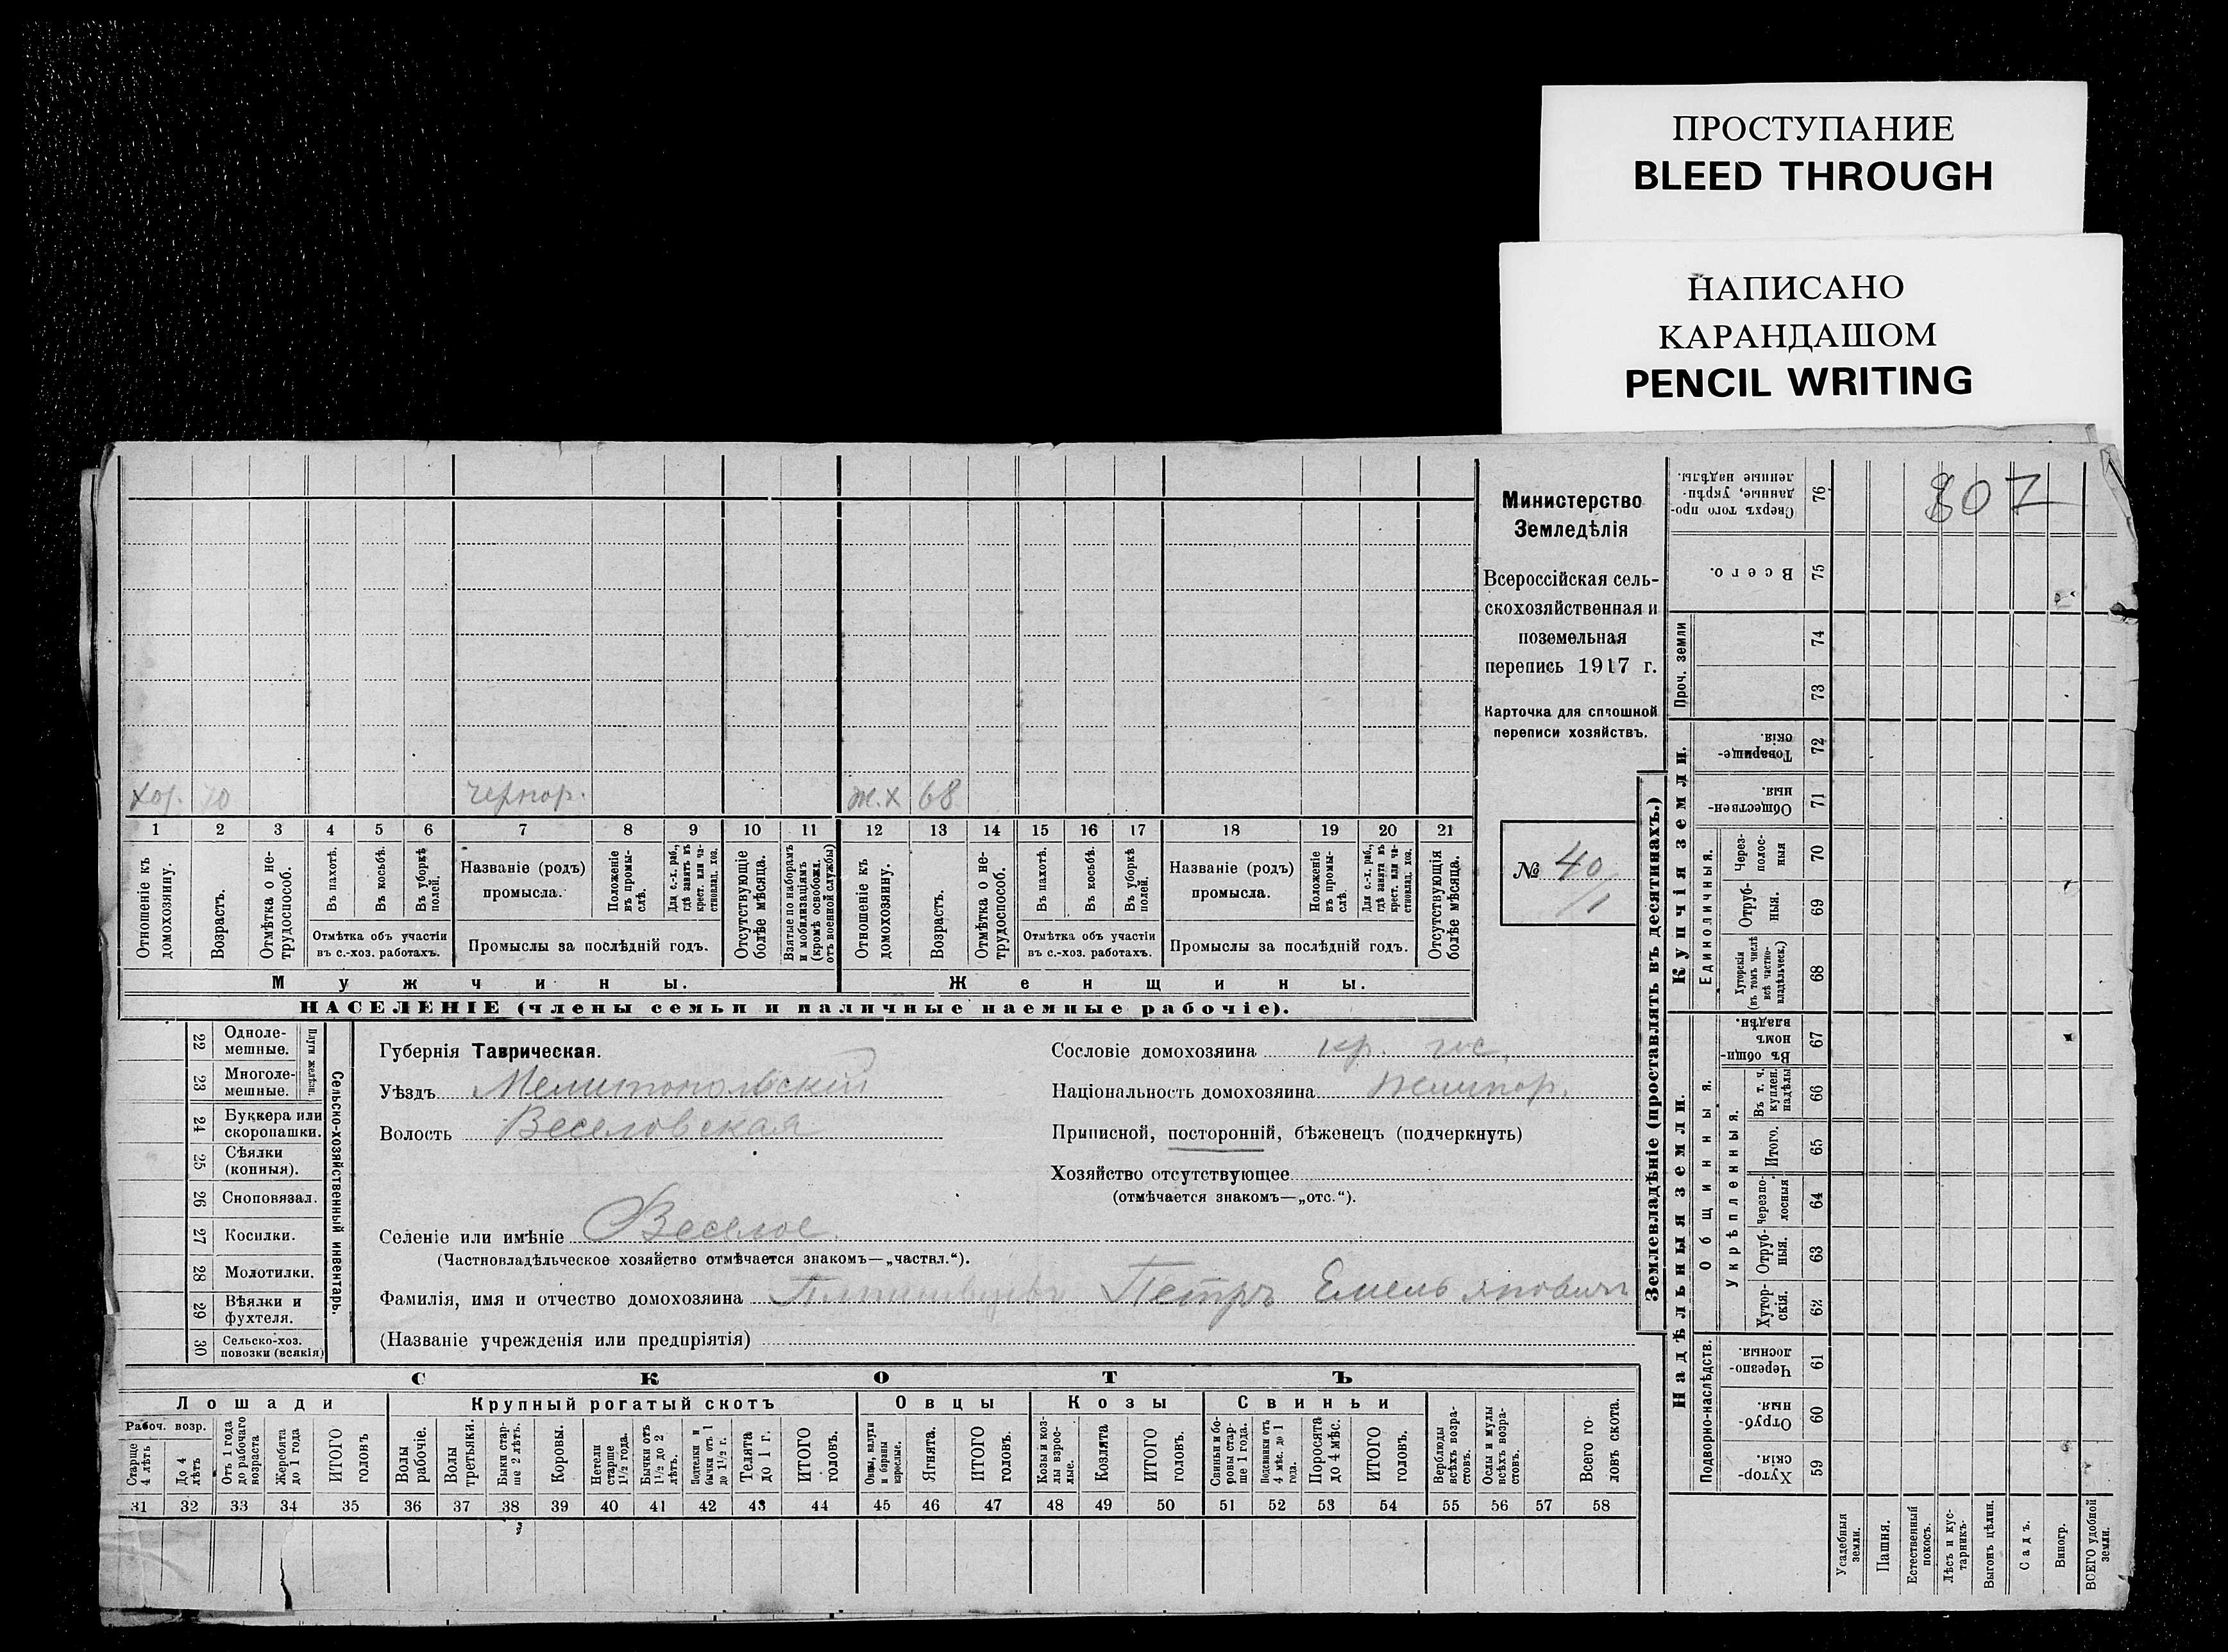 ПРОСТУПАНИЕ
BLEED THROUGH
НАПИСАНО
КАРАНДАШОМ
PENCIL WRITING
807
Министерство
Земледѣлія
Всероссійская сель-
скохозяйственная и
поземельная
перепись 1917 г.
Карточка для сплошной
переписи хозяйствъ.
№ 40/1
хоз. 70 чернор. ж.х 68
1 2 3 4 5 6 7 8 9 10 11 12 13 14 15 16 17 18 19 20 21
Отношеніе къ домохозяину.
Возрастъ.
Отмѣтка о не-трудоспособ.
Въ пахотѣ.
Въ косьбѣ.
Въ уборкѣ полей.
Отмѣтка объ участіи
въ с.-хоз. работахъ.
Названіе (родъ)
промысла.
Положеніе въ промы-слѣ.
Для с.-х. раб., гдѣ занятъ въ крест. или ча-стновлад. хоз.
Промыслы за послѣдній годъ.
Отсутствующіе болѣе мѣсяца.
Взятые по наборамъ и мобилизаціямъ (кромѣ освобожд. отъ военной службы)
Отношеніе къ домохозяину.
Возрастъ.
Отмѣтка о не-трудоспособ.
Въ пахотѣ.
Въ косьбѣ.
Въ уборкѣ полей.
Отмѣтка объ участіи
въ с.-хоз. работахъ.
Названіе (родъ)
промысла.
Положеніе въ промы-слѣ.
Для с.-х. раб., гдѣ занята въ крест. или ча-стновлад. хоз.
Промыслы за послѣдній годъ.
Отсутствующія болѣе мѣсяца.
Мужчины.
Женщины.
НАСЕЛЕНІЕ (члены семьи и наличные наемные рабочіе).
Сельско-хозяйственный инвентарь.
Плуги желѣзн.
22 Одноле-мешные.
23 Многоле-мешные.
24 Буккера или скоропашки.
25 Сѣялки (конныя).
26 Сноповязал.
27 Косилки.
28 Молотилки.
29 Вѣялки и фухтеля.
30 Сельско-хоз. повозки (всякія)
Губернія Таврическая.
Уѣздъ Мелитопольскій
Волость Веселовская
Селеніе или имѣніе Веселое.
(Частновладѣльческое хозяйство отмѣчается знакомъ—„частвл.“).
Фамилія, имя и отчество домохозяина Петръ Емельяновичъ
(Названіе учрежденія или предпріятія)
Сословіе домохозяина кр.
Національность домохозяина
Приписной, посторонній, бѣженецъ (подчеркнуть)
Хозяйство отсутствующее
(отмѣчается знакомъ—„отс.“).
СКОТЪ
Лошади
Крупный рогатый скотъ
Овцы
Козы
Свиньи
Рабоч. возр.
Старше 4 лѣтъ
До 4 лѣтъ
Отъ 1 года до рабочаго возраста
Жеребята до 1 года
ИТОГО головъ
Волы рабочіе.
Волы третьяки.
Быки стар-ше 2 лѣтъ.
Коровы.
Нетели старше 1½ года.
Бычки отъ 1½ до 2 лѣтъ.
Подтелки и бычки отъ 1 до 1½ г.
Телята до 1 г.
ИТОГО головъ.
Овцы, валухи и бараны взрослые.
Ягнята.
ИТОГО головъ.
Козы и коз-лы взрос-лые.
Козлята
ИТОГО головъ.
Свиньи и бо-ровы стар-ше 1 года.
Подсвинки отъ 4 мѣс. до 1 года.
Поросята до 4 мѣс.
ИТОГО головъ.
Верблюды всѣхъ возра-стовъ.
Ослы и мулы всѣхъ возра-стовъ.
Всего го-ловъ скота.
31 32 33 34 35 36 37 38 39 40 41 42 43 44 45 46 47 48 49 50 51 52 53 54 55 56 57 58
Землевладѣніе (проставлять въ десятинахъ.)
Надѣльныя земли.
Купчія земли.
Проч. земли
Подворно-наслѣдств.
Общинныя.
Укрѣпленныя.
Единоличныя.
Сверхъ того про-данные, укрѣп-ленные надѣлы. 76
Всего. 75
74
73
Товарище-скія. 72
Обществен-ныя. 71
Через-полос-ныя 70
Отруб-ныя. 69
Хуторскія (въ томъ числѣ всѣ частно-владѣльческ.) 68
Въ общи-номъ владѣн. 67
Въ т. ч. куплен. надѣлы 66
Итого. 65
Черезпо-лосныя 64
Отруб-ныя. 63
Хутор-скія. 62
Черезпо-лосныя. 61
Отруб-ныя. 60
Хутор-скія. 59
Усадебныя земли.
Пашня.
Естественный покосъ.
Лѣсъ и кус-тарникъ.
Выгонъ цѣлин.
Садъ.
Виногр.
ВСЕГО удобной земли.